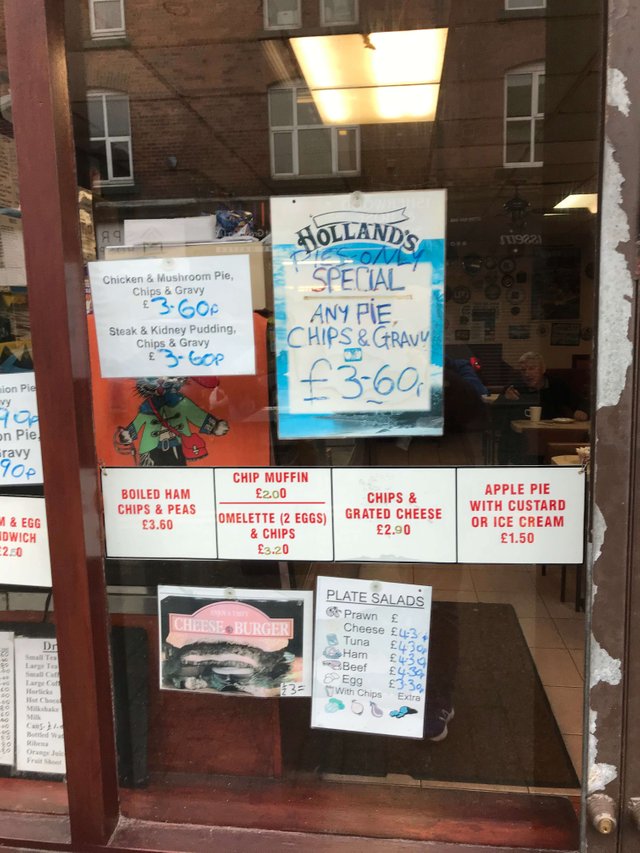 HOLLAND'S
PIES ONLY
SPECIAL
ANY PIE,
CHIPS & GRAVY
£3-60p
Chicken & Mushroom Pie,
Chips & Gravy
£3-60p
Steak & Kidney Pudding,
Chips & Gravy
£3-60p
ion Pie
vy
90p
on Pie,
ravy
90p
BOILED HAM
CHIPS & PEAS
£3.60
CHIP MUFFIN
£2.00
OMELETTE (2 EGGS)
& CHIPS
£3.20
CHIPS &
GRATED CHEESE
£2.90
APPLE PIE
WITH CUSTARD
OR ICE CREAM
£1.50
M & EGG
DWICH
£2.50
CHEESE BURGER
PLATE SALADS
Prawn £
Cheese £4.30
Tuna £4.30
Ham £4.30
Beef £4.30
Egg £3.30
With Chips Extra
Small Tea
Large Tea
Small Coff
Large Coff
Horlicks
Hot Choco
Milkshake
Milk
Cans
Bottled Wat
Ribena
Orange Juic
Fruit Shoot